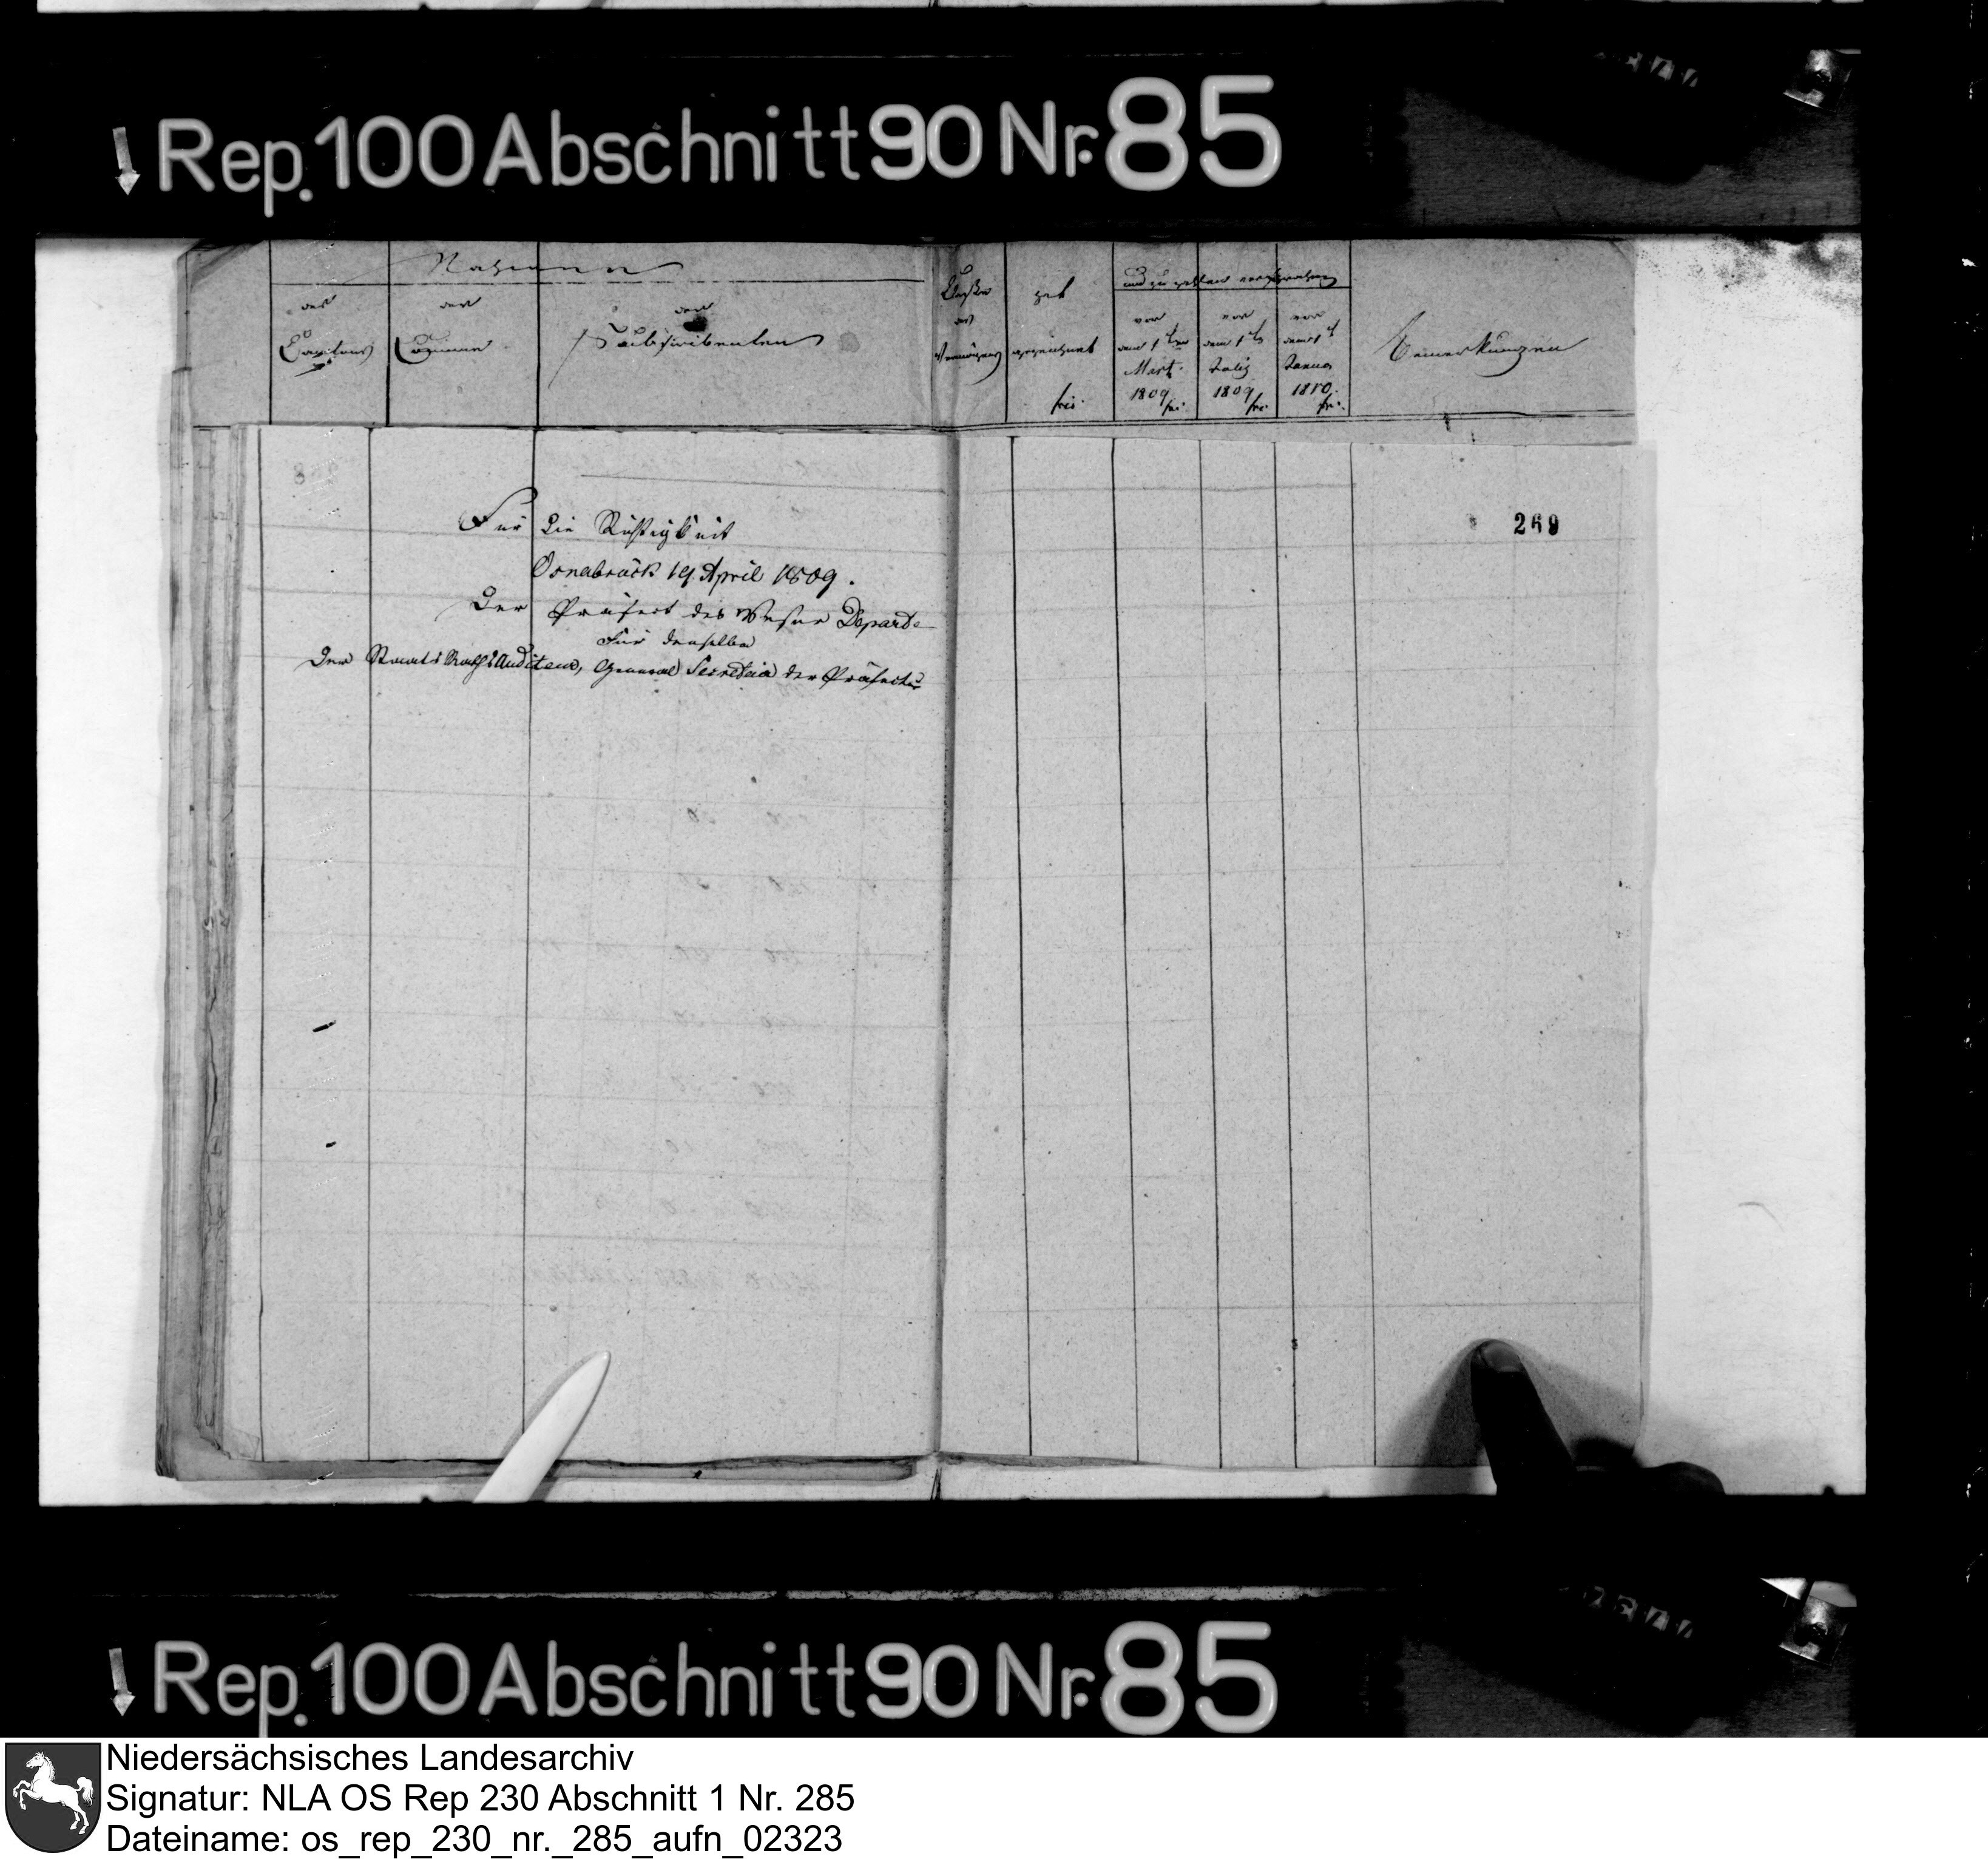 Rep. 100 Abschnitt 90 Nr. 85
Nahmen
des Cantons
der Comune
der Subscribenten
Classe des Vermögens
hat gezeichnet frcs.
und zu zahlen versprochen
vor dem 1ten Martz 1809 frc.
vor dem 1ten July 1809 frc.
vor dem 1ten Januar 1810 frc.
Bemerkungen
269
Für die Richtigkeit
Osnabrück 19 April 1809.
Der Präfect des Weser Departe
Für denselben
Der Staats Raths Auditeur, General Secretair der Präfectur
Rep. 100 Abschnitt 90 Nr. 85
Niedersächsisches Landesarchiv
Signatur: NLA OS Rep 230 Abschnitt 1 Nr. 285
Dateiname: os_rep_230_nr._285_aufn_02323